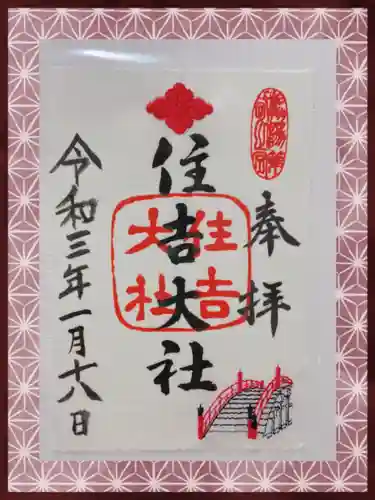 奉拝
住吉大社
住吉
大社
令和三年一月十八日